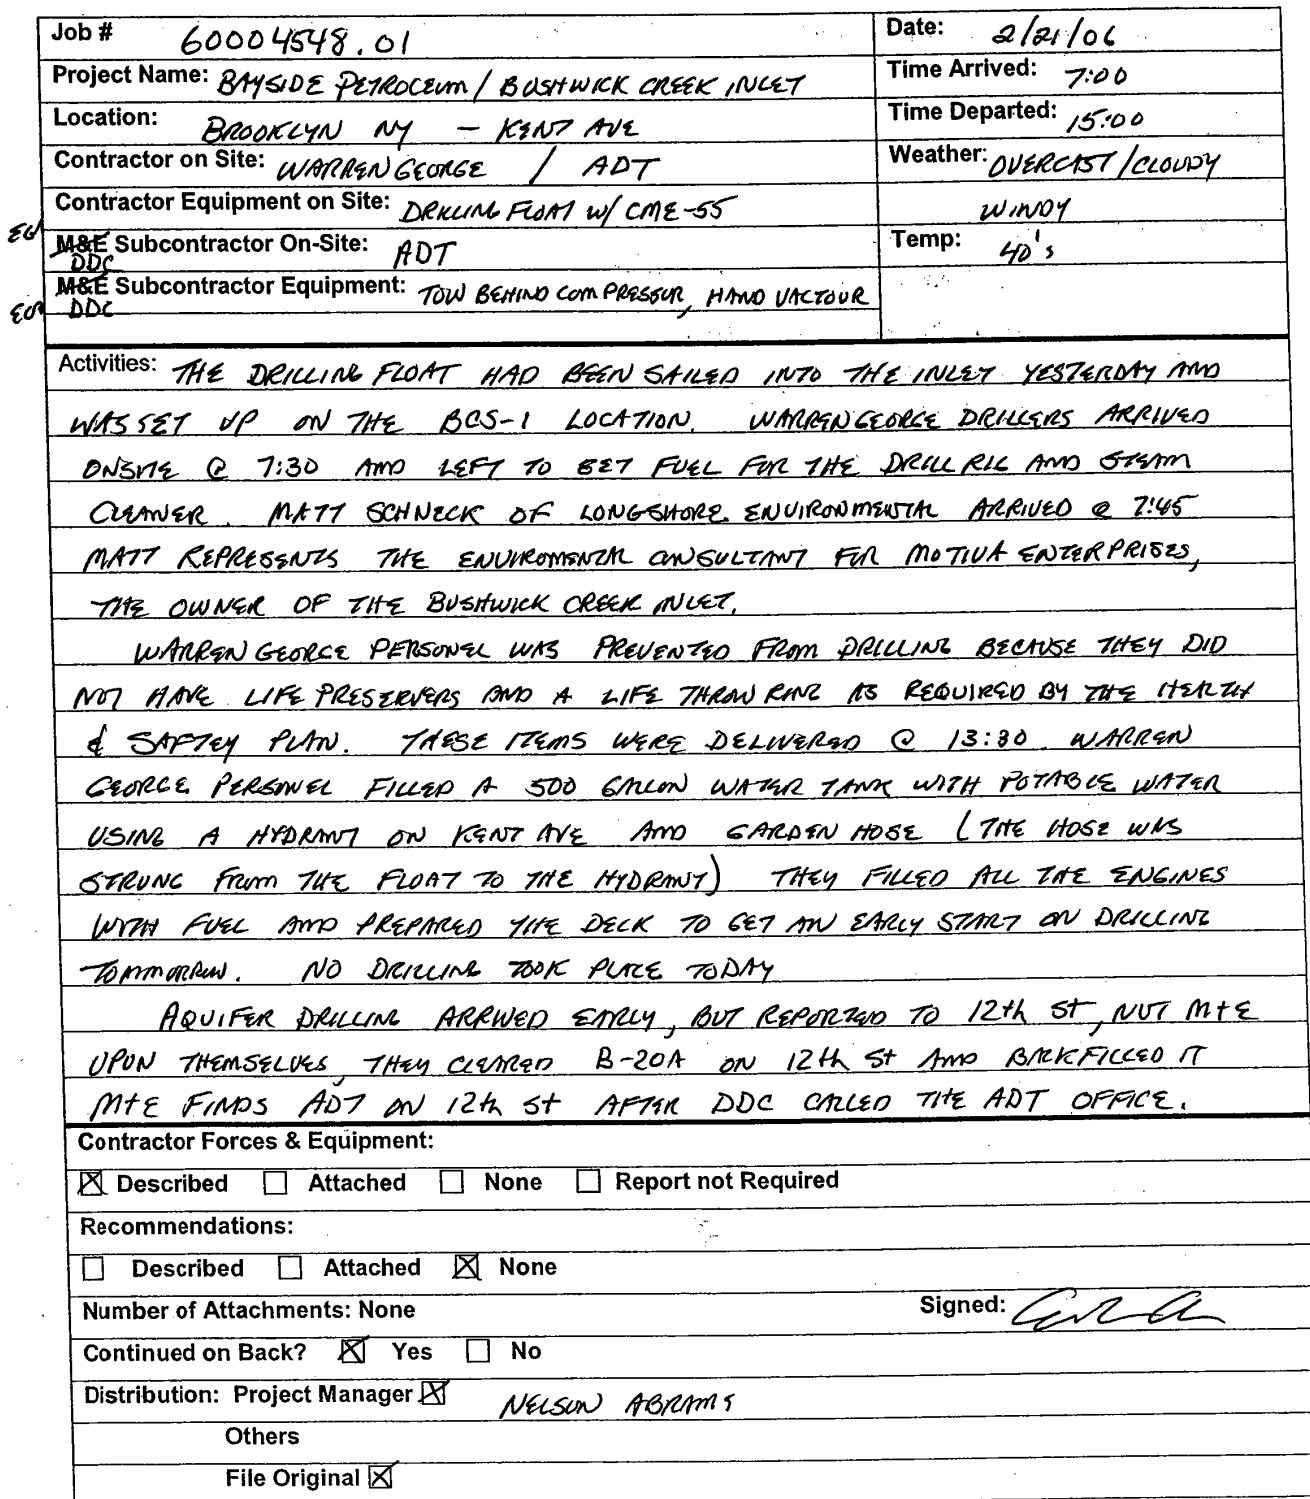 Job # 60004548.01
Date: 2/21/06
Project Name: BAYSIDE PETROLEUM / BUSHWICK CREEK INLET
Time Arrived: 7:00
Location: BROOKLYN NY - KENT AVE
Time Departed: 15:00
Contractor on Site: WARREN GEORGE / ADT
Weather: OVERCAST/CLOUDY
WINDY
Contractor Equipment on Site: DRILLING FLOAT W/ CME-55
M&E Subcontractor On-Site: ADT
DDC
Temp: 40's
M&E Subcontractor Equipment: TOW BEHIND COMPRESSUR, HAND VACTOUR
DDC
Activities: THE DRILLING FLOAT HAD BEEN SAILED INTO THE INLET YESTERDAY AND
WAS SET UP ON THE BCS-1 LOCATION. WARREN GEORGE DRILLERS ARRIVED
ONSITE @ 7:30 AND LEFT TO GET FUEL FOR THE DRILL RIG AND STEAM
CLEANER. MATT SCHNECK OF LONGSHORE ENVIRONMENTAL ARRIVED @ 7:45
MATT REPRESENTS THE ENVIROMENTAL CONSULTANT FOR MOTIVA ENTERPRISES,
THE OWNER OF THE BUSHWICK CREEK INLET.
WARREN GEORGE PERSONEL WAS PREVENTED FROM DRILLING BECAUSE THEY DID
NOT HAVE LIFE PRESERVERS AND A LIFE THROW RING AS REQUIRED BY THE HEALTH
& SAFTEY PLAN. THESE ITEMS WERE DELIVERED @ 13:30 WARREN
GEORGE PERSONEL FILLED A 500 GALLON WATER TANK WITH POTABLE WATER
USING A HYDRANT ON KENT AVE AND GARDEN HOSE (THE HOSE WAS
STRUNG FROM THE FLOAT TO THE HYDRANT) THEY FILLED ALL THE ENGINES
WITH FUEL AND PREPARED THE DECK TO GET AN EARLY START ON DRILLING
TOMMORROW. NO DRILLING TOOK PLACE TODAY
AQUIFER DRILLING ARRIVED EARLY, BUT REPORTED TO 12th ST, NOT M+E
UPON THEMSELVES, THEY CLEARED B-20A ON 12th St AND BACKFILLED IT
M+E FINDS ADT ON 12th St AFTER DDC CALLED THE ADT OFFICE.
Contractor Forces & Equipment:
Described Attached None Report not Required
Recommendations:
Described Attached None
Number of Attachments: None
Signed:
Continued on Back? Yes No
Distribution: Project Manager NELSON ABRAMS
Others
File Original